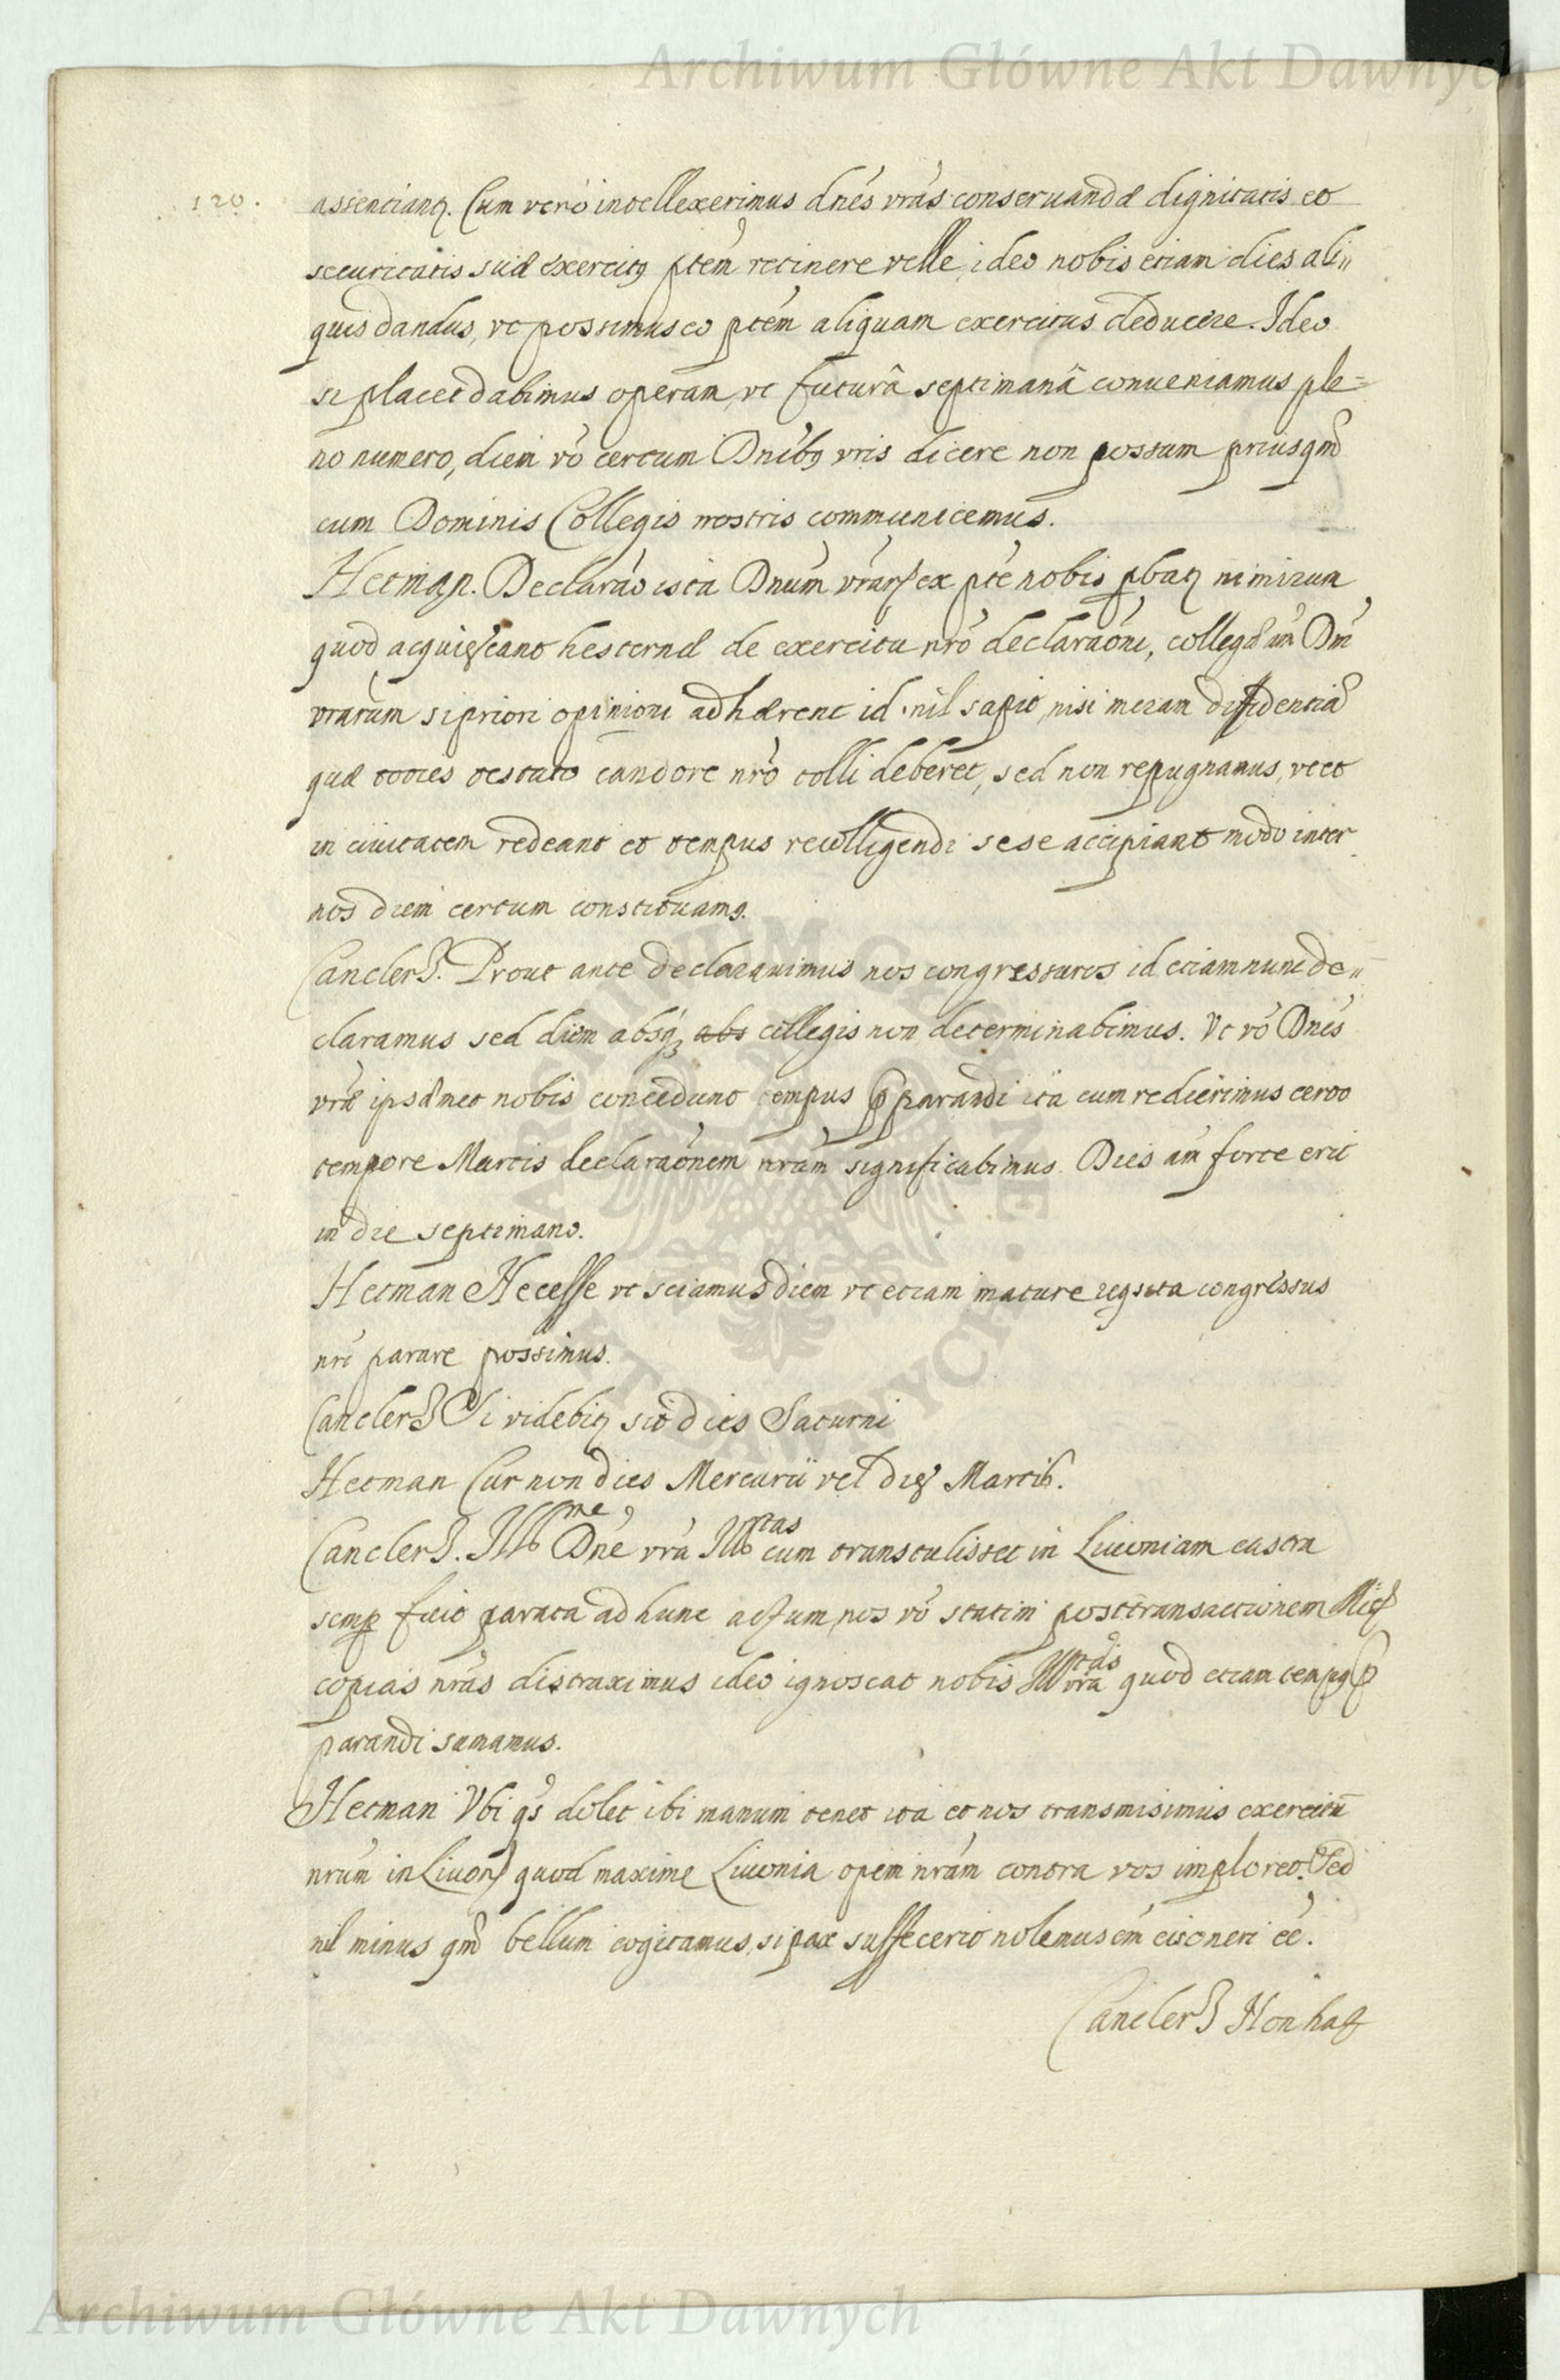 Archiwum Główne Akt Dawnych
120. assentianꝫ. Cum verò intellexerimus dnes vras conseruandæ dignitatis et
securitatis suæ exercitꝰ ptem retinere velle, ideo nobis etiam dies ali„
quis dandus, vt possimus eo ptem aliquam exercitus deducere. Ideo
si placet dabimus operam, vt futurâ septimanâ conueniamus ple=
no numero, diem vo certum Dnibꝰ vris dicere non possum priusqm
cum Dominis Collegis nostris communicemus.
Hetman. Declarao ista Dnum vrarꝭ ex pte nobis pbaꝫ nimirum
quod acquiescant hesternæ de exercitu nro declaraoni, collegæ am Dm
vrarum si priori opinioni adhærent id nil sapit, nisi meram diffidentiā
quæ toties testato candore nro tolli deberet, sed non repugnamus, vt et
in ciuitatem redeant et tempus recolligendi sese accipiant modo inter
nos diem certum constituamꝰ.
Canclerꝫ. Prout ante declarauimus nos congressuros id etiam nunc de„
claramus sed diem absqꝫ abs collegis non determinabimus. Vt vo Dnes
vræ ipsæmet nobis concedunt tempus p̄parandi ita cum redierimus certo
tempore Martis declaraonem nram significabimus. Dies am forte erit
in die septimano.
Hetman Necesse vt sciamus diem vt etiam mature reqsita congressus
nri parare possimus.
Canclerꝫ Si videbiꝫ sit dies Saturni
Hetman Cur non dies Mercurii vel dies Martis.
Canclerꝫ. Illme Dne vra Illtas cum transtulisset in Liuoniam castra
semp fuit parata ad hunc actum, nos vo statim post transactionem
copias nras distraximus ideo ignoscat nobis Illtas vra quod etiam tempꝰ p̄
parandi sumamus.
Hetman Vbi qs dolet ibi manum tenet ita et nos transmisimus exercitū
nrum in Liuonꝭ quod maxime Liuonia opem nram contra vos imploret. Sed
nil minus qm bellum cogitamus, si pax suffecerit nolemus em
Canclerꝫ
Archiwum Główne Akt Dawnych